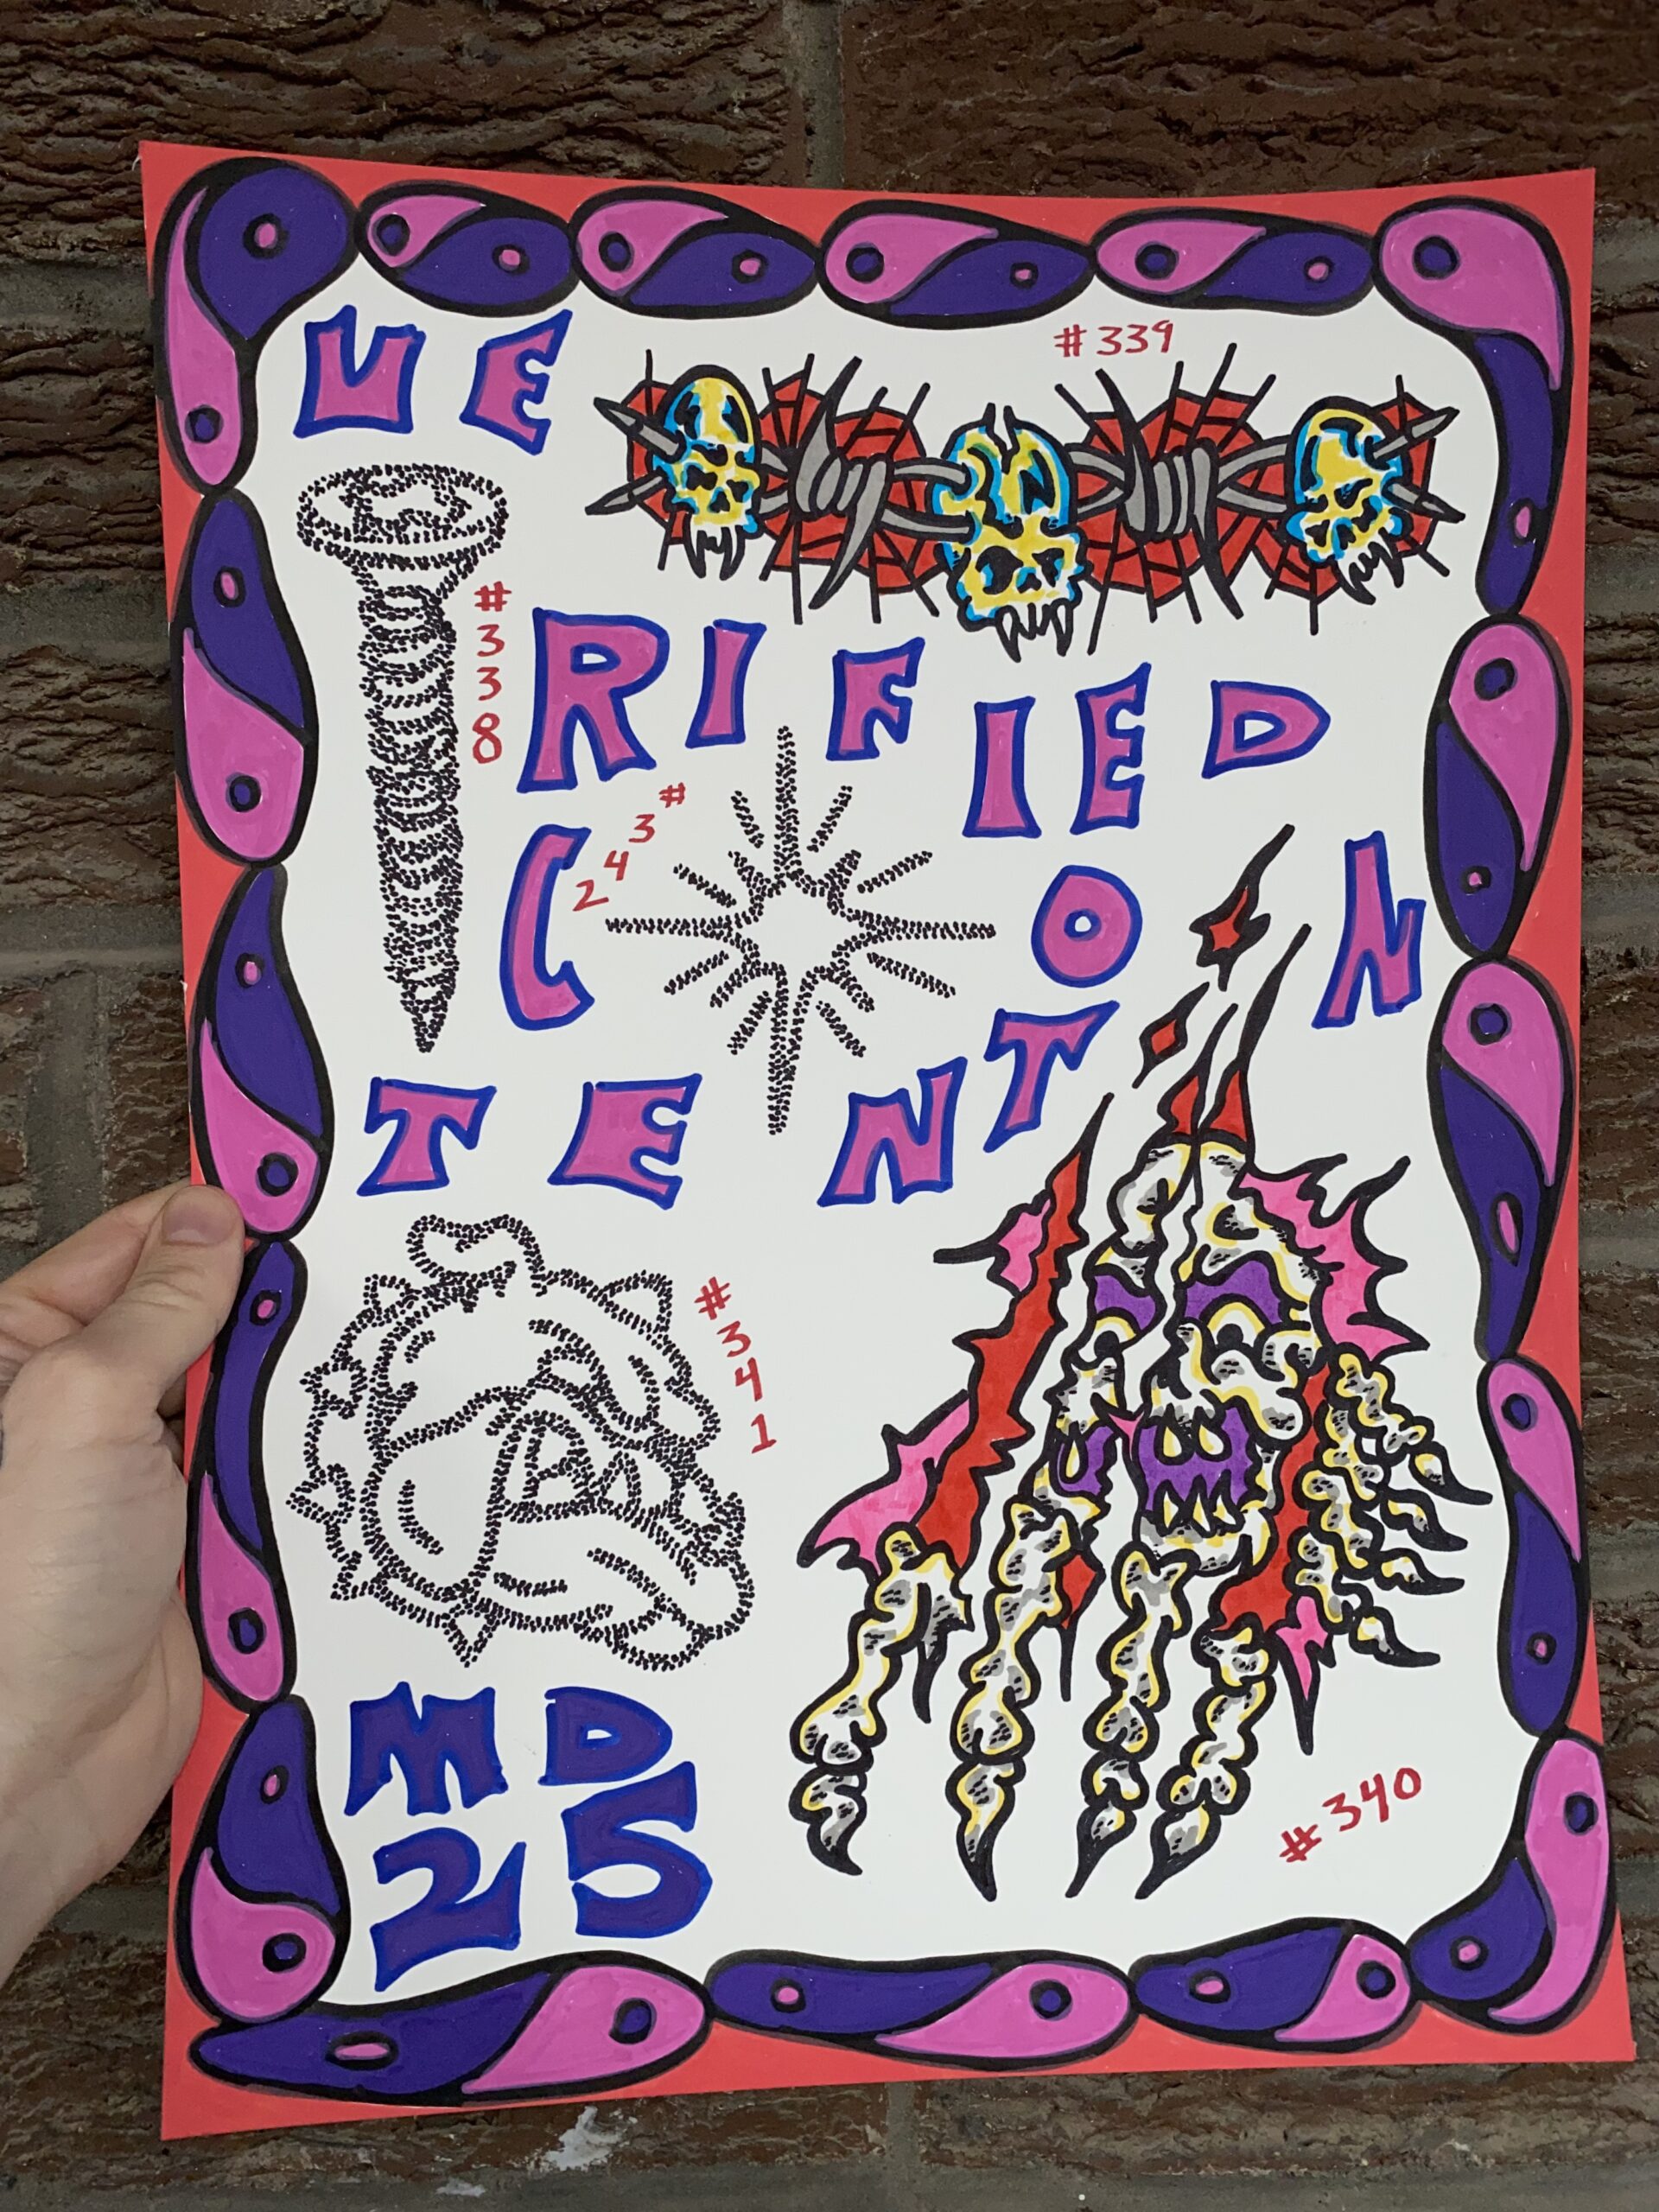 VE
#339
#338
RIFIED
#342
CON
TENT
#341
MD
25
#340